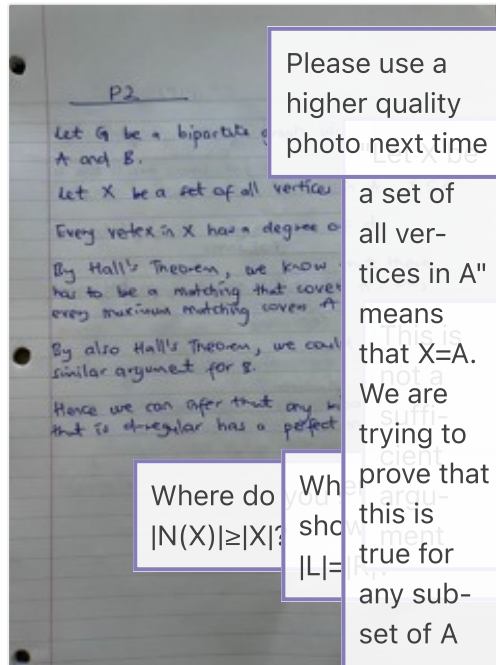 P2
Let G be a bipartite
A and B.
Let X be a set of all vertices
Every vertex in X has a degree
By Hall's Theorem, we know
has to be a matching that cover
every maximum matching covers A
By also Hall's Theorem, we coul
similar argument for B.
Hence we can infer that any
that is d-regular has a perfect
Please use a
higher quality
photo next time
Let X be
a set of
all ver-
tices in A"
means
that X=A.
We are
trying to
prove that
this is
true for
any sub-
set of A
This is
not a
suffi-
cient
argu-
ment
Where do you
|N(X)|≥|X|?
Wh
sho
|L|=|R|